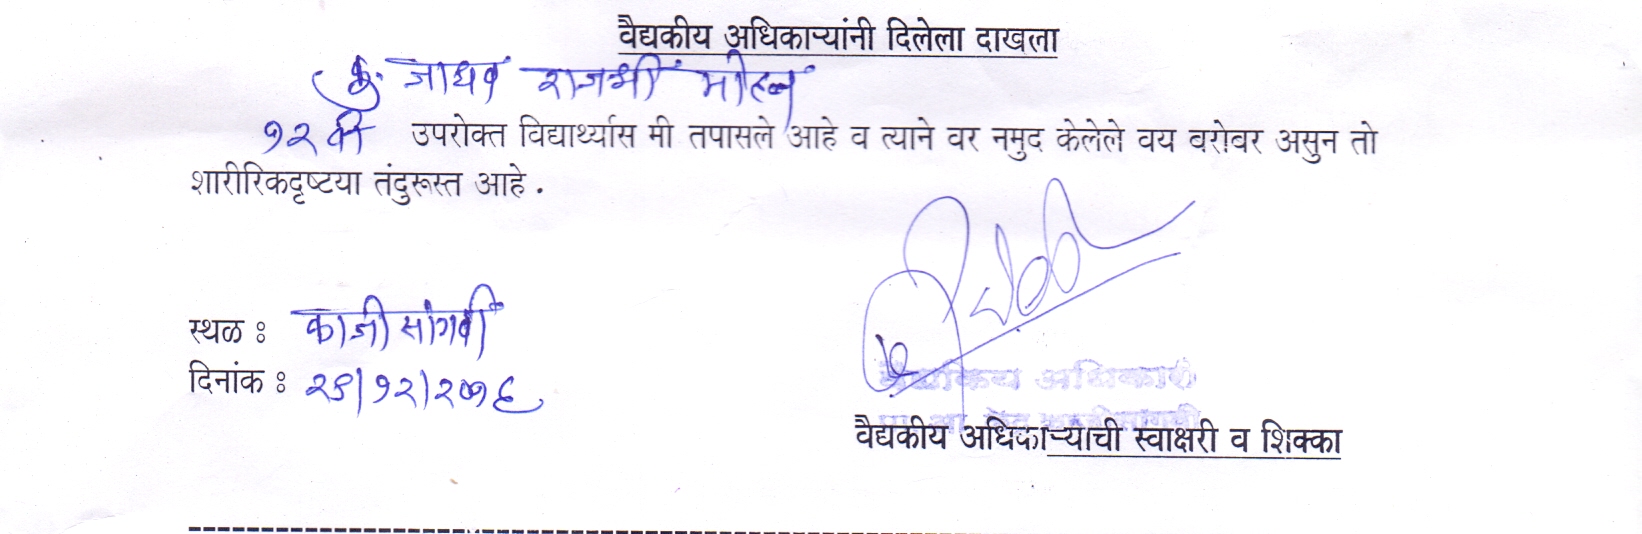 वैद्यकीय अधिकाऱ्यांनी दिलेला दाखला
कु. जाधव राजश्री मोहन
१२ वी उपरोक्त विद्यार्थ्यास मी तपासले आहे व त्याने वर नमुद केलेले वय बरोबर असुन तो
शारीरिकदृष्टया तंदुरूस्त आहे .
स्थळ : काजी सांगवी
दिनांक : २९/१२/२०१६
वैद्यकिय अधिकारी
वैद्यकीय अधिकाऱ्याची स्वाक्षरी व शिक्का